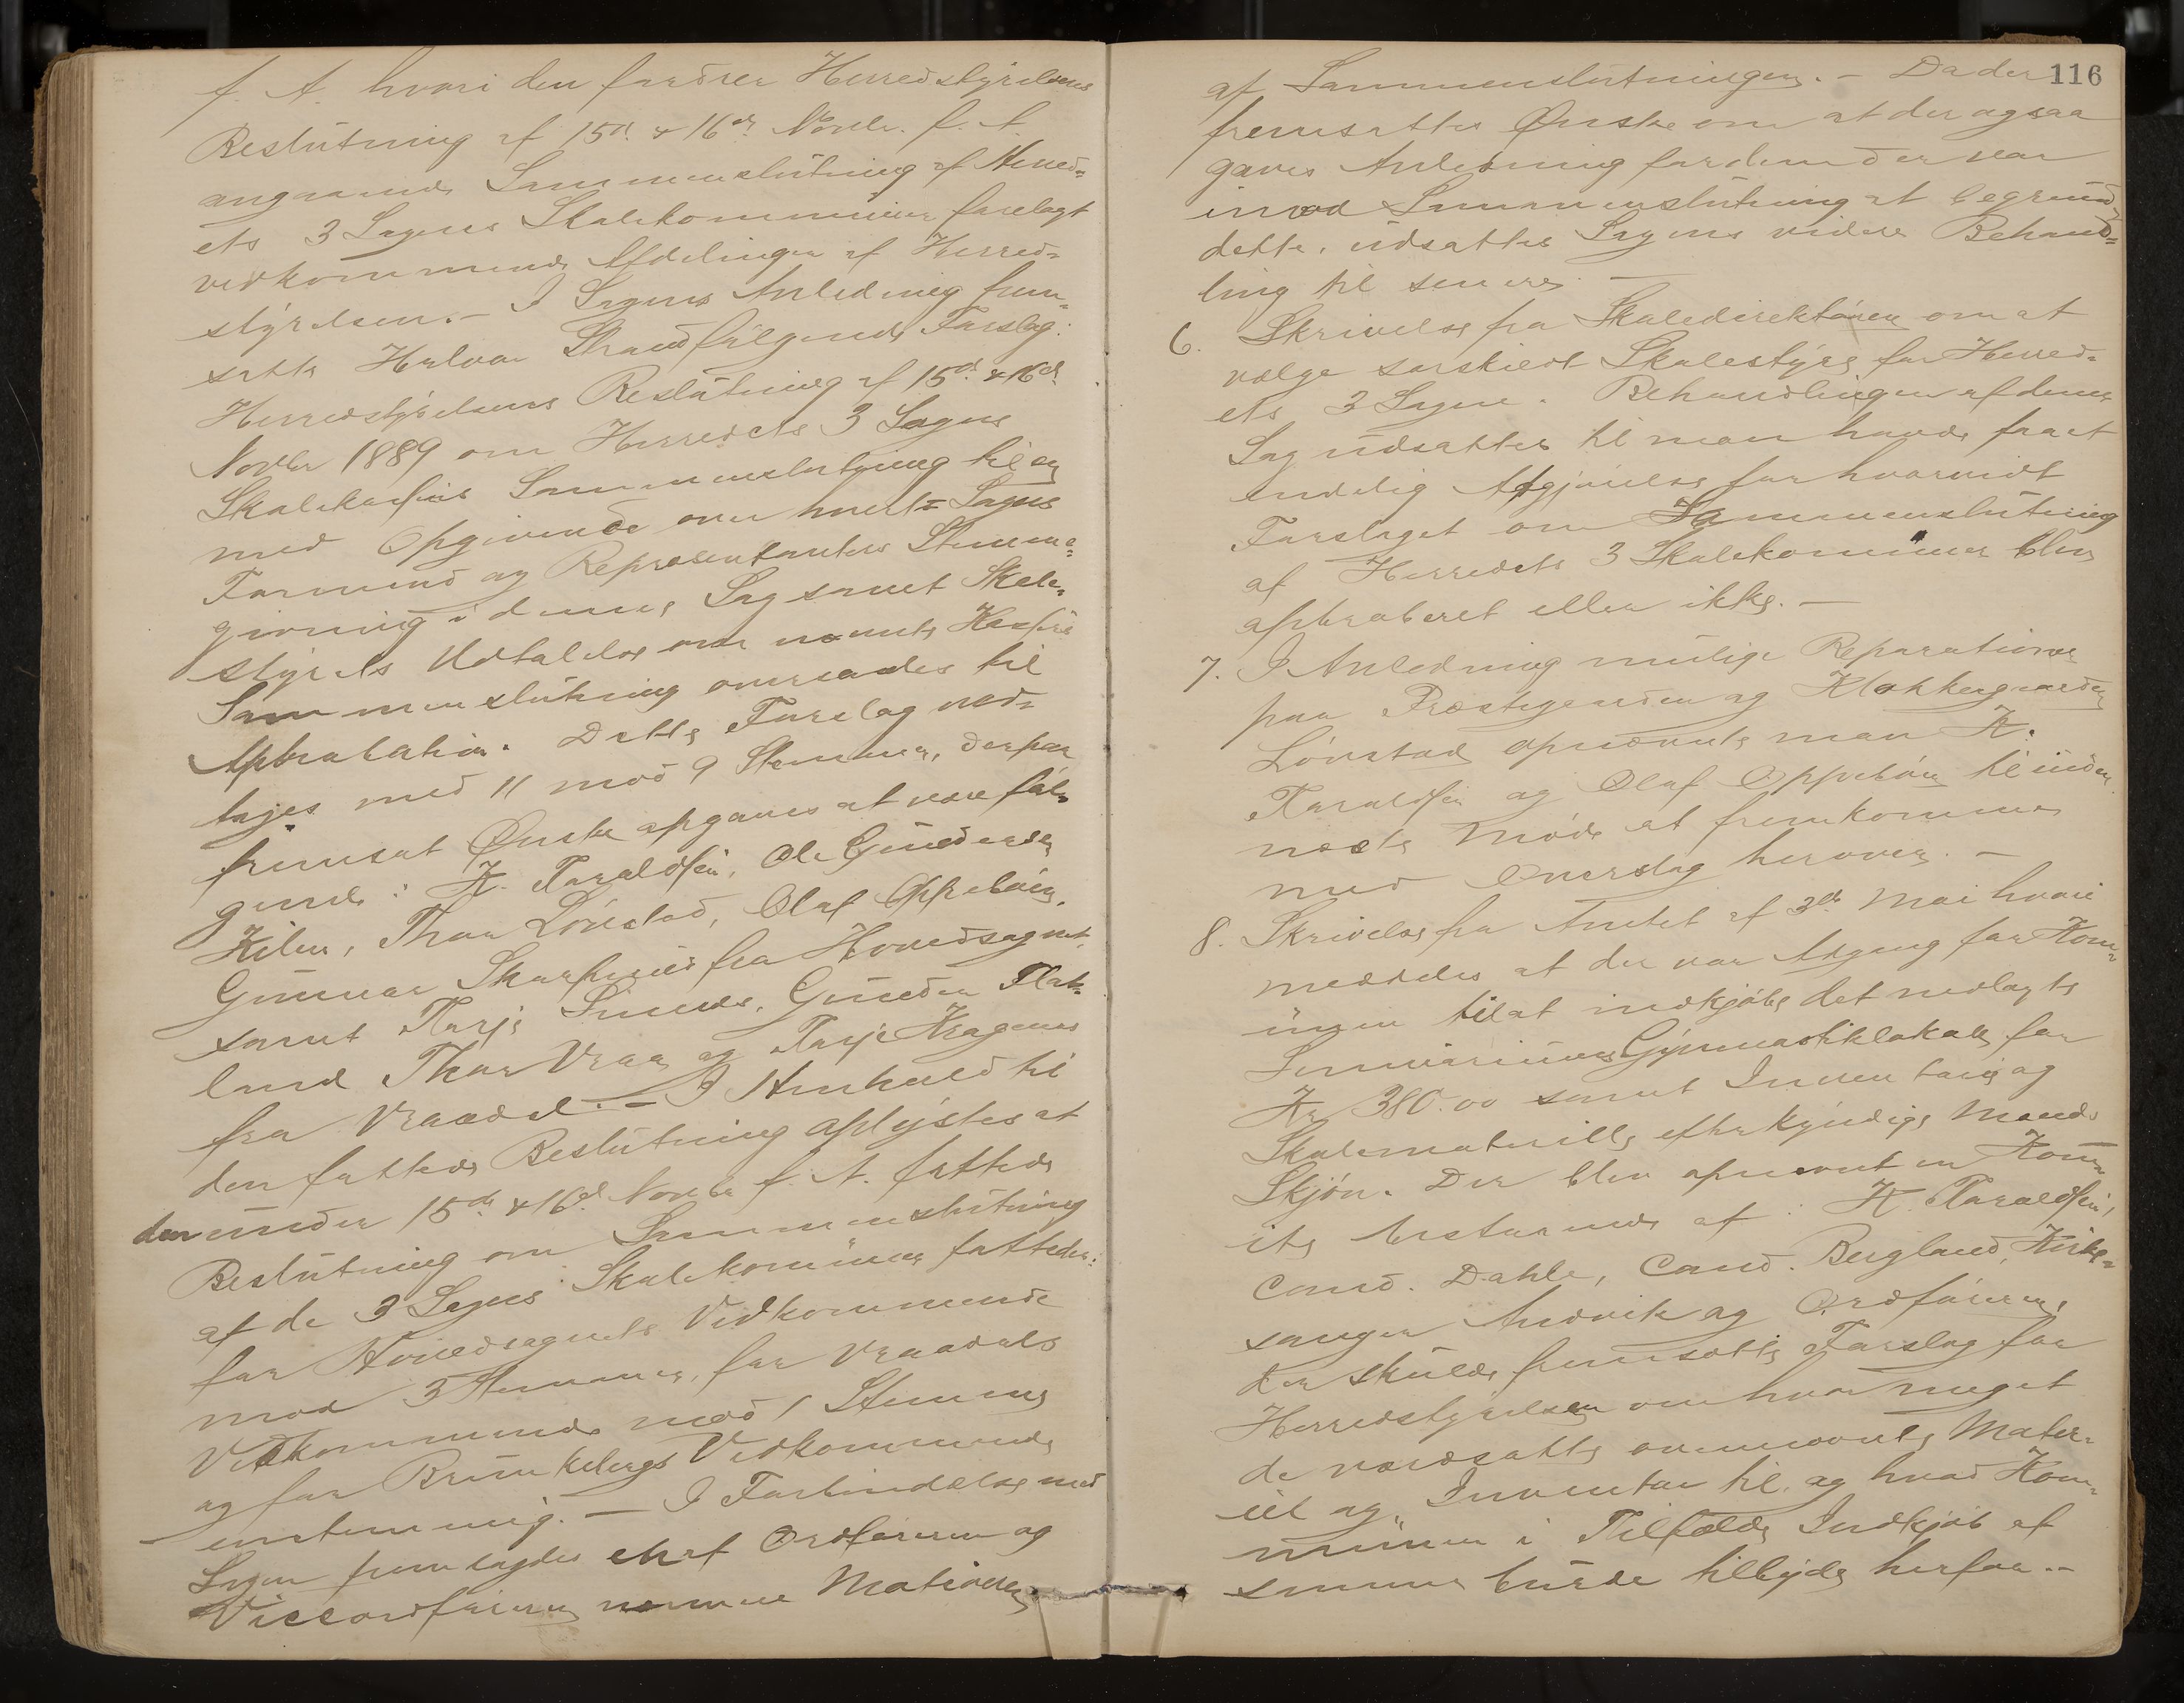 f. A. hvori den fordrer Herredstyrelsens
Beslutning af 15de & 16de Novbr. f. A.
angaaende Sammenslutning af Herred-
ets 3 Sognes Skolekommuner forelagt
vedkommende Afdelinger af Herred-
styrelsen. – I Sagens Anledning frem-
satte Halvor Strand følgende Forslag:
Herredstyrelsens Beslutning af 15de & 16de
Novbr 1889 om Herredets 3 Sognes
Skolekasses Sammenslutning til en
med Opgivende over hvert Sogns
Formænd og Repræsentanters Stemme-
givning i denne Sag samt Skole-
styrets Udtalelse om nævnte Kasses
Sammenslutning oversendes til
Approbation. Dette Forslag ved-
toges med 11 mod 9 Stemmer, derpaa
fremsat Ønske opgaves at være føl-
gende: K. Taraldsen, Ole Gundersen
Kilen, Thor Lönstad, Olaf Oppebøen,
Gunnar Skarprud fra Hovedsognet,
samt Tarje Simnes, Gunder Flat-
land Thor Vraa og Tarje Kragenes
fra Vraadal. – I Henhold til
den fattede Beslutning oplystes at
den under 15de & 16de Novbr f. A. fattede
Beslutning om Sammenslutning
af de 3 Sognes Skolekommuner fattedes:
for Hovedsognets Vedkommende
mod 3 Stemmer, for Vraadals
Vedkommende mod 1 Stemme
og for Brunkebergs Vedkommende
enstemmig. – I Forbindelse med
Sagen fremlagdes et af Ordføreren og
Viceordføreren Motiver
af Sammenslutningen. – Da der 116
fremsattes Ønske om at der ogsaa
gaves Anledning for dem der var
imod Sammenslutning at begrunde
dette, udsattes Sagens videre Behand-
ling til senere. –
6. Skrivelse fra Skoledirektøren om at
vælge særskildt Skolestyre for Herred-
ets 3 Sogne. Behandlingen af denne
Sag udsattes til man havde faaet
endelig Afgjørelse for hvorvidt
Forslaget om Sammenslutning
af Herredets 3 Skolekommuner blev
approberet eller ikke. –
7. I Anledning mulige Reparationer
paa Præstegaarden og Klokkergaarden
Lönstad opnævnte man K.
Taraldsen og Olaf Oppebøen til under
næste Møde at fremkomme
med Overslag herover. –
8. Skrivelse fra Amtet af 3de Mai hvori
meddeles at der var Adgang for Kom-
munen til at indkjøbe det nedlagte
Seminariums Gymnastiklokale for
Kr 380.00 samt Inventarie og
Skolemateriell efter kyndige Mænds
Skjøn. Der blev opnævnt en Kom-
ite bestaaende af: K. Taraldsen,
Cand. Dahle, Cand. Bergland, Kirke-
sanger Andvik og Ordføreren,
der skulde fremsætte Forslag for
Herredstyrelsen om hvor meget
de værdsatte ovennævnte Mater-
iel og Inventar til, og hvad Kom-
munen i Tilfælde Indkjøb af
samme burde tilbyde herfor. –